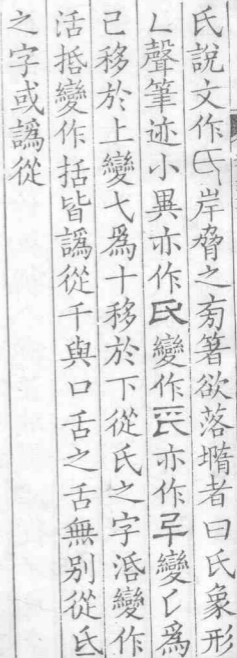 氏說文作𠂆岸脅之㫄箸欲落墮者曰氏象形
乁聲筆迹小異亦作氏變作𠀀亦作𠦑變𠃊爲
己移於上變七爲十移於下從氏之字㓉變作
活抵變作括皆譌從千與口舌之舌無別從氐
之字或譌從